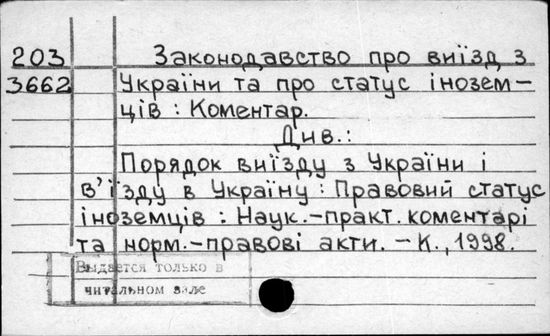 203 Законодавство про виїзд з
3662 України та про статус інозем-
ців : Коментар.
Див.:
Порядок виїзду з України і
в'їзду в Україну : Правовий статус
іноземців : Наук.-практ. коментарі
та норм.-правові акти. – К., 1998.
Выдается только в
читальном зале